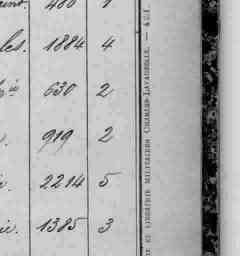 400 1
les. 1884 4
630 2
919 2
2214 5
ie. 1385 3
IE ET LIBRAIRIE MILITAIRES CHARLES-LAVAUZELLE. —